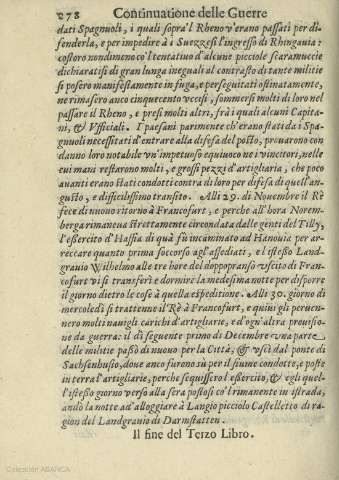 278 Continuatione delle Guerre
dati Spagnuoli, i quali sopra'l Rheno v'erano passati per di-
fenderla, e per impedire à i Suezzesi l'ingresso di Rhingauia:
costoro nondimeno co'l tentatiuo d'alcune picciole scaramuccie
dichiaratisi di gran lunga ineguali al contrasto di tante militie
si posero manifestamente in fuga, e perseguitati ostinatamente,
ne rimasero anco cinquecento vccisi, sommersi molti di loro nel
passare il Rheno, e presi molti altri, frà i quali alcuni Capita-
ni, & Vfficiali. I paesani parimente ch'erano stati da i Spa-
gnuoli necessitati d'entrare alla difesa del posto, prouarono con
danno loro notabile vn'impetuoso equiuoco ne i vincitori, nelle
cui mani restarono molti, e grossi pezzi d'artigliaria, che poco
auanti erano stati condotti contra di loro per difesa di quell'an-
gusto, e difficilissimo transito. Alli 29. di Nouembre il Rè
fece di nuouo ritorno à Francofurt, e perche all'hora Norem-
berga rimaneua strettamente circondata dalle genti del Tilly,
l'esercito d'Hassia di quà fù incaminato ad Hanouia per ar-
reccare quanto prima soccorso agl'assediati, e l'istesso Land-
grauio Wilhelmo alle tre hore del doppopranso vscito di Fran-
cofurt vi si transferì e dormire la medesima notte per disporre
il giorno dietro le cose à quella espeditione. Alli 30. giorno di
mercoledì si trattenne il Rè à Francofurt, e quiui gli peruen-
nero molti nauigli carichi d'artigliarie, e d'ogn'altra prouisio-
ne da guerra: il dì seguente primo di Decembre vna parte
delle militie passò di nuouo per la Città, & vscì dal ponte di
Sachsenhusio, doue anco furono sù per il fiume condotte, e poste
in terra l'artigliarie, perche seguissero l'esercito, & egli quel-
l'istesso giorno verso alla sera postosi co'l rimanente in istrada,
andò la notte ad alloggiare à Langio picciolo Castelletto di ra-
gion del Landgrauio di Darmstatten.
Il fine del Terzo Libro.
Colección ABANCA